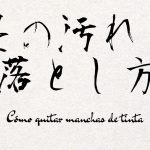 の汚れ
落とし方
Cómo quitar manchas de tinta